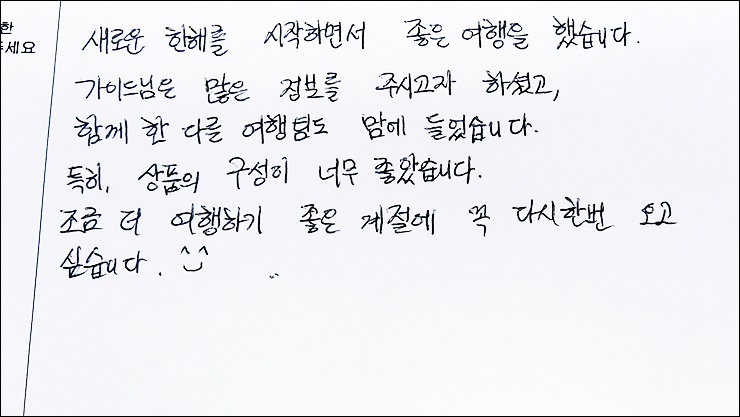 한
주세요
새로운 한해를 시작하면서 좋은 여행을 했습니다.
가이드님은 많은 정보를 주시고자 하셨고,
함께 한 다른 여행팀도 맘에 들었습니다.
특히, 상품의 구성이 너무 좋았습니다.
조금 더 여행하기 좋은 계절에 꼭 다시한번 오고
싶습니다. ^^